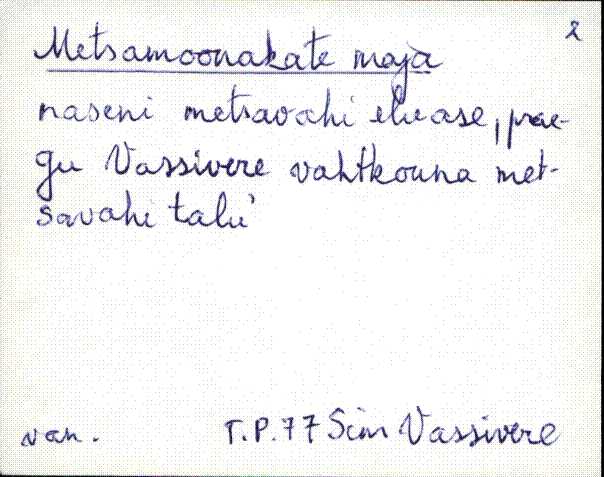 2
Metsamoonakate maja
naseni metsavahi eluase, prae-
gu Vassivere vahtkonna met-
savahi talu'
van. T.P. 77 Sim Vassivere